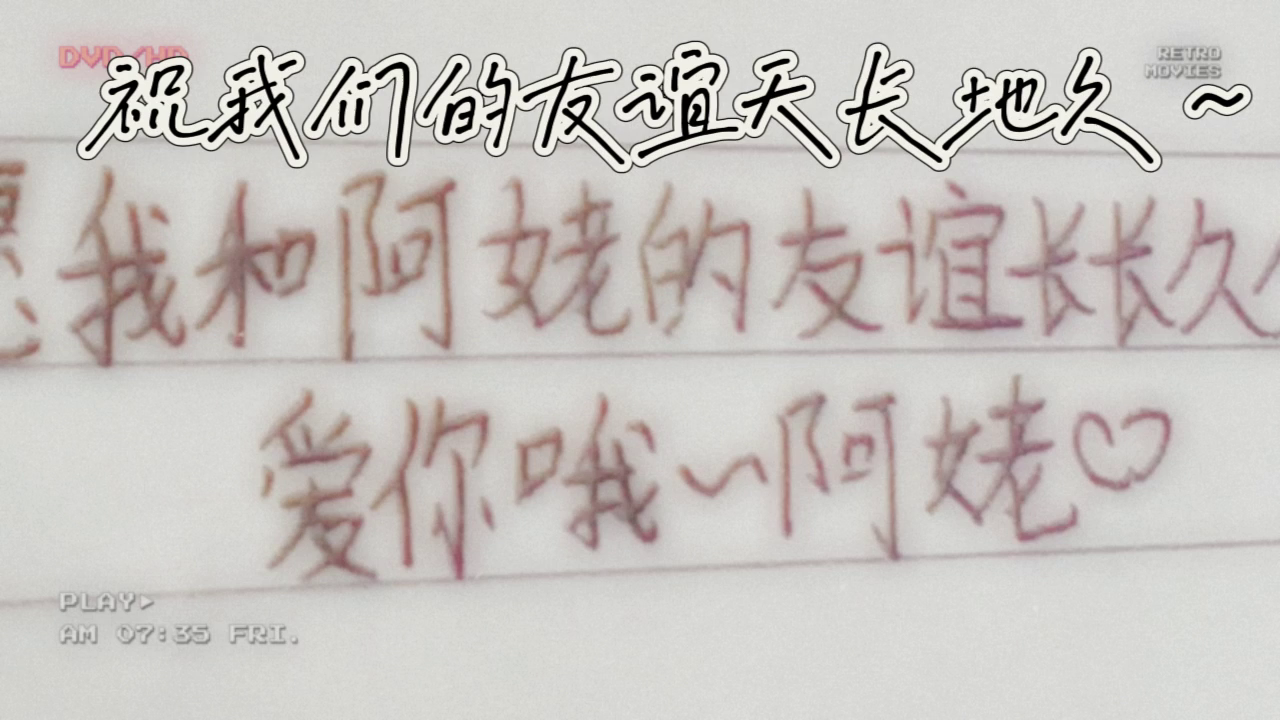 DVD/HD
RETRO
MOVIES
祝我们的友谊天长地久 ~
愿我和阿姥的友谊长长久
爱你哦~阿姥♡
PLAY▸
AM 07:35 FRI.